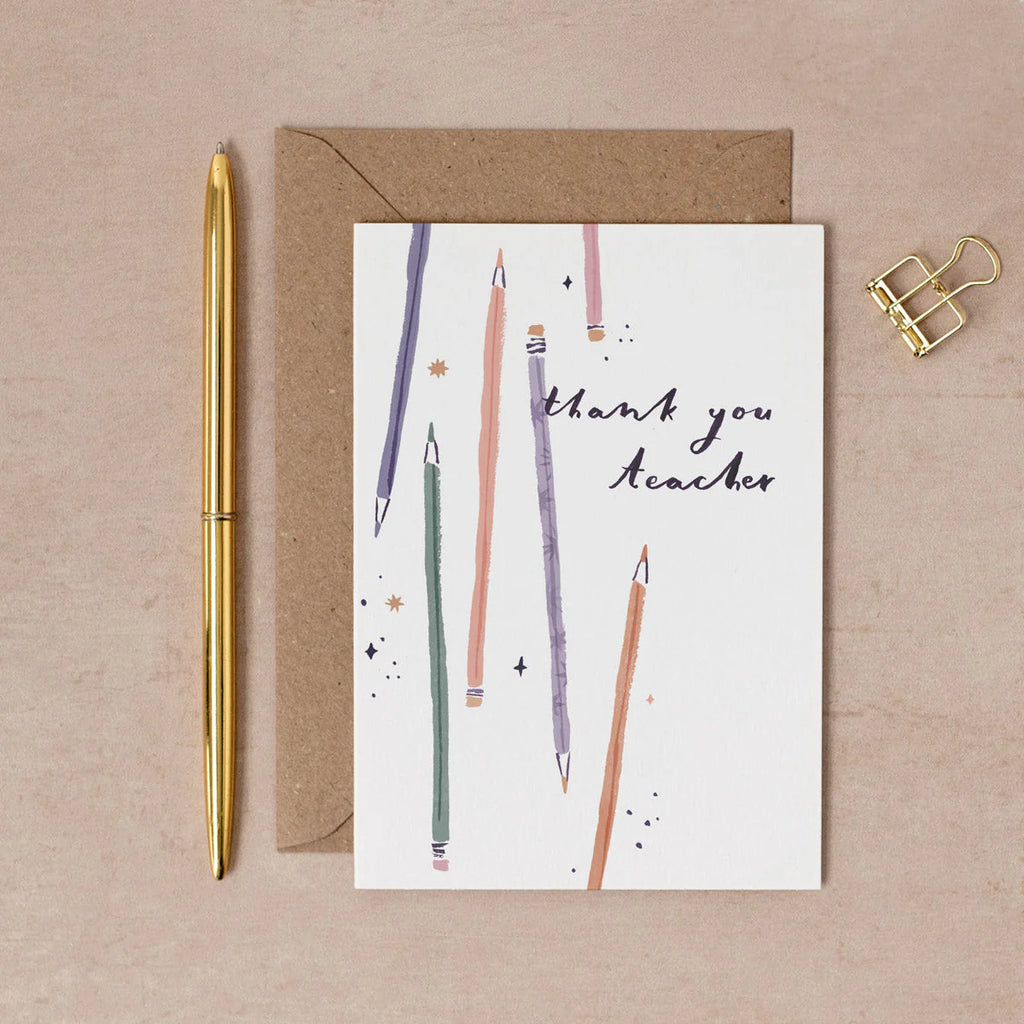 thank you
teacher